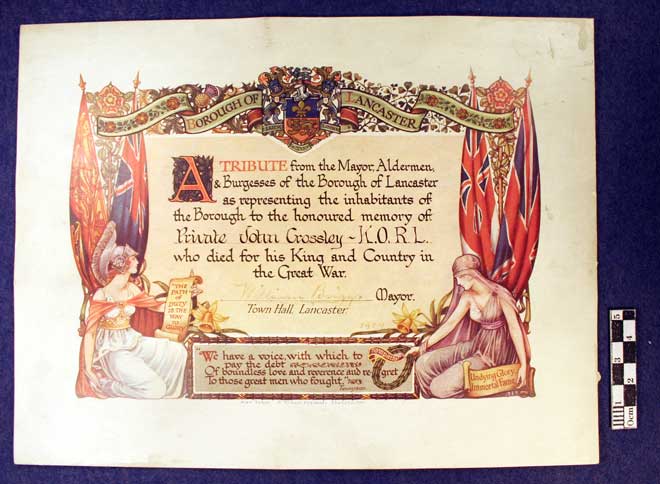 BOROUGH OF LANCASTER
A TRIBUTE from the Mayor, Aldermen,
& Burgesses of the Borough of Lancaster
as representing the inhabitants of
the Borough to the honoured memory of
Private John Crossley - K.O.R.L.
who died for his King and Country in
the Great War.
William Briggs Mayor.
Town Hall, Lancaster.
"THE
PATH
OF
DUTY
IS THE
WAY
TO
"We have a voice, with which to
pay the debt
Of boundless love and reverence and regret
To those great men who fought,"
Tennyson
Undying Glory
Immortal Fame
0cm 1 2 3 4 5